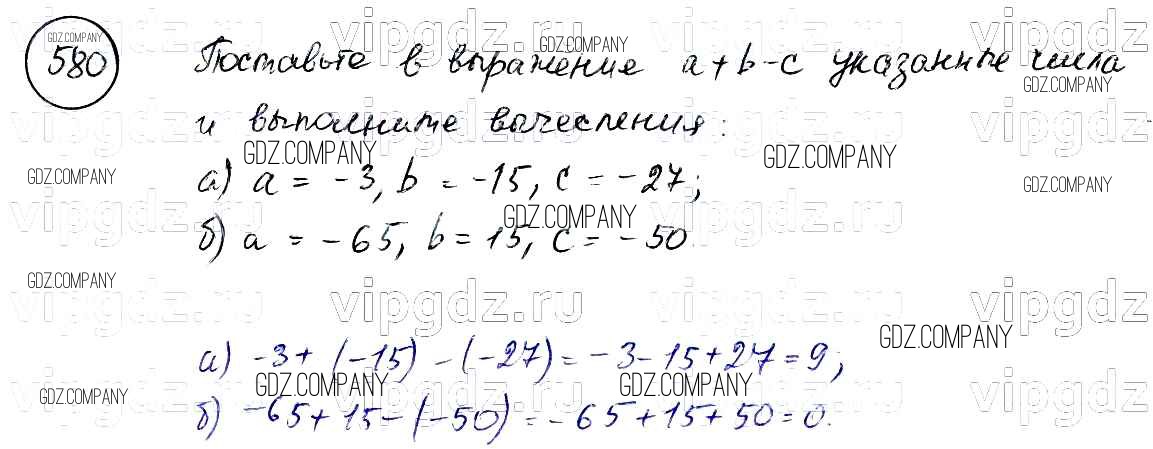 580 Поставьте в выражение a + b - c указанные числа
и выполните вычесления:
а) a = -3, b = -15, c = -27;
б) a = -65, b = 15, c = -50.
а) -3 + (-15) - (-27) = -3 - 15 + 27 = 9;
б) -65 + 15 - (-50) = -65 + 15 + 50 = 0.
GDZ.COMPANY
vipgdz.ru